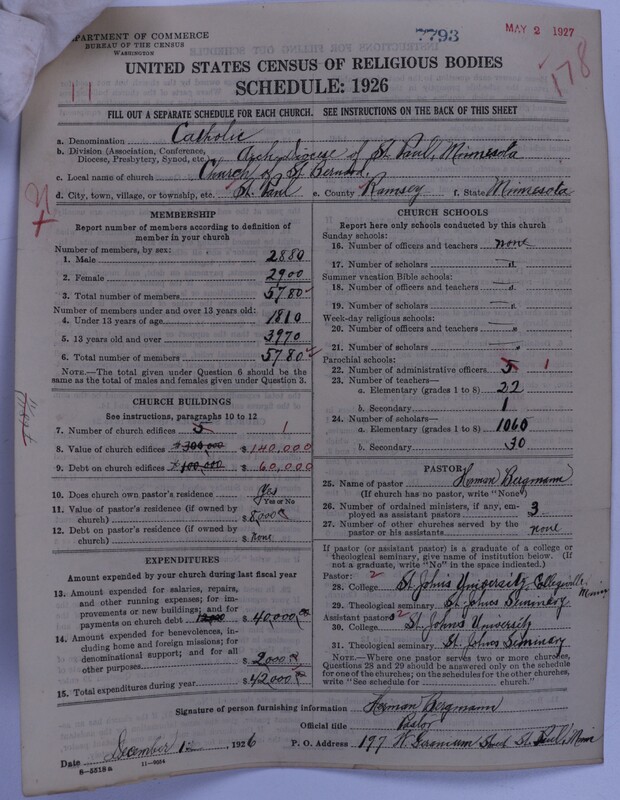 DEPARTMENT OF COMMERCE
BUREAU OF THE CENSUS
WASHINGTON
7793
MAY 2 1927
178
UNITED STATES CENSUS OF RELIGIOUS BODIES
SCHEDULE: 1926
11
FILL OUT A SEPARATE SCHEDULE FOR EACH CHURCH. SEE INSTRUCTIONS ON THE BACK OF THIS SHEET
a. Denomination Catholic
b. Division (Association, Conference, Diocese, Presbytery, Synod, etc.) Archdiocese of St. Paul, Minnesota
c. Local name of church Church of St Bernard
d. City, town, village, or township, etc. St. Paul e. County Ramsey f. State Minnesota
MEMBERSHIP
Report number of members according to definition of member in your church
Number of members, by sex:
1. Male 2880
2. Female 2900
3. Total number of members 5780
Number of members under and over 13 years old:
4. Under 13 years of age 1810
5. 13 years old and over 3970
6. Total number of members 5780
NOTE.—The total given under Question 6 should be the same as the total of males and females given under Question 3.
CHURCH BUILDINGS
See instructions, paragraphs 10 to 12
7. Number of church edifices 5 1
8. Value of church edifices $ 300,000 $ 140,000
9. Debt on church edifices $ 100,000 $ 60,000
10. Does church own pastor's residence Yes
Yes or No
11. Value of pastor's residence (if owned by church) $ 8,000
12. Debt on pastor's residence (if owned by church) $ None
EXPENDITURES
Amount expended by your church during last fiscal year
13. Amount expended for salaries, repairs, and other running expenses; for improvements or new buildings; and for payments on church debt $ 40,000.00
14. Amount expended for benevolences, including home and foreign missions; for denominational support; and for all other purposes $ 2000.00
15. Total expenditures during year $ 42,000.00
CHURCH SCHOOLS
Report here only schools conducted by this church
Sunday schools:
16. Number of officers and teachers none
17. Number of scholars
Summer vacation Bible schools:
18. Number of officers and teachers
19. Number of scholars
Week-day religious schools:
20. Number of officers and teachers
21. Number of scholars
Parochial schools:
22. Number of administrative officers 5 1
23. Number of teachers—
a. Elementary (grades 1 to 8) 22
b. Secondary 1
24. Number of scholars—
a. Elementary (grades 1 to 8) 1060
b. Secondary 30
PASTOR
25. Name of pastor Herman Bergmann
(If church has no pastor, write "None")
26. Number of ordained ministers, if any, employed as assistant pastors 3
27. Number of other churches served by the pastor or his assistants none
If pastor (or assistant pastor) is a graduate of a college or theological seminary, give name of institution below. (If not a graduate, write "No" in the space indicated.)
Pastor: 2
28. College St. Johns University, Collegeville Minn
29. Theological seminary St. Johns Seminary
Assistant pastor: 2
30. College St. Johns University
31. Theological seminary St. Johns Seminary
NOTE.—Where one pastor serves two or more churches, Questions 28 and 29 should be answered only on the schedule for one of the churches; on the schedules for the other churches, write "See schedule for church."
Signature of person furnishing information Herman Bergmann
Official title Pastor
Date December 12, 1926 P. O. Address 197 W. Geranium Street St. Paul, Minn
8-5518a 11-9054